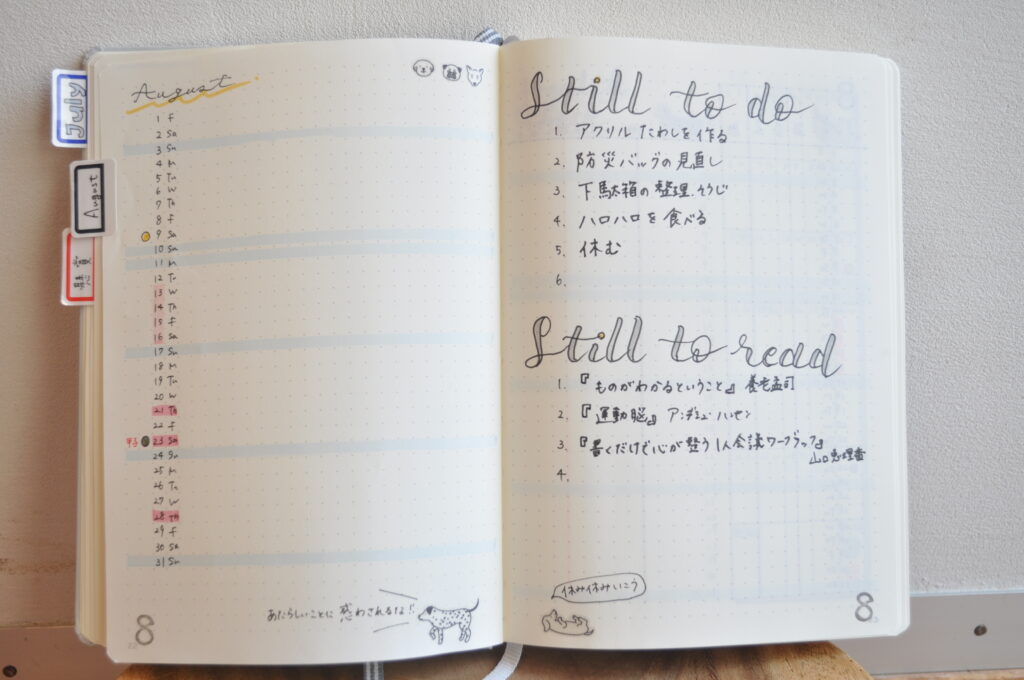 July
August
懸賞
August
1 F
2 Sa
3 Su
4 M
5 Tu
6 W
7 Th
8 F
9 Sa
10 Su
11 M
12 Tu
13 W
14 Th
15 F
16 Sa
17 Su
18 M
19 Tu
20 W
21 Th
22 F
23 Sa
24 Su
25 M
26 Tu
27 W
28 Th
29 F
30 Sa
31 Su
あたらしいことに惑わされるな!!
8
Still to do
1. アクリルたわしを作る
2. 防災バッグの見直し
3. 下駄箱の整理、そうじ
4. ハロハロを食べる
5. 休む
6.
Still to read
1. 『ものがわかるということ』 養老孟司
2. 『運動脳』 アンデシュ・ハンセン
3. 『書くだけで心が整う 1人会議ワークブック』
山口恵理香
4.
休み休みいこう
8